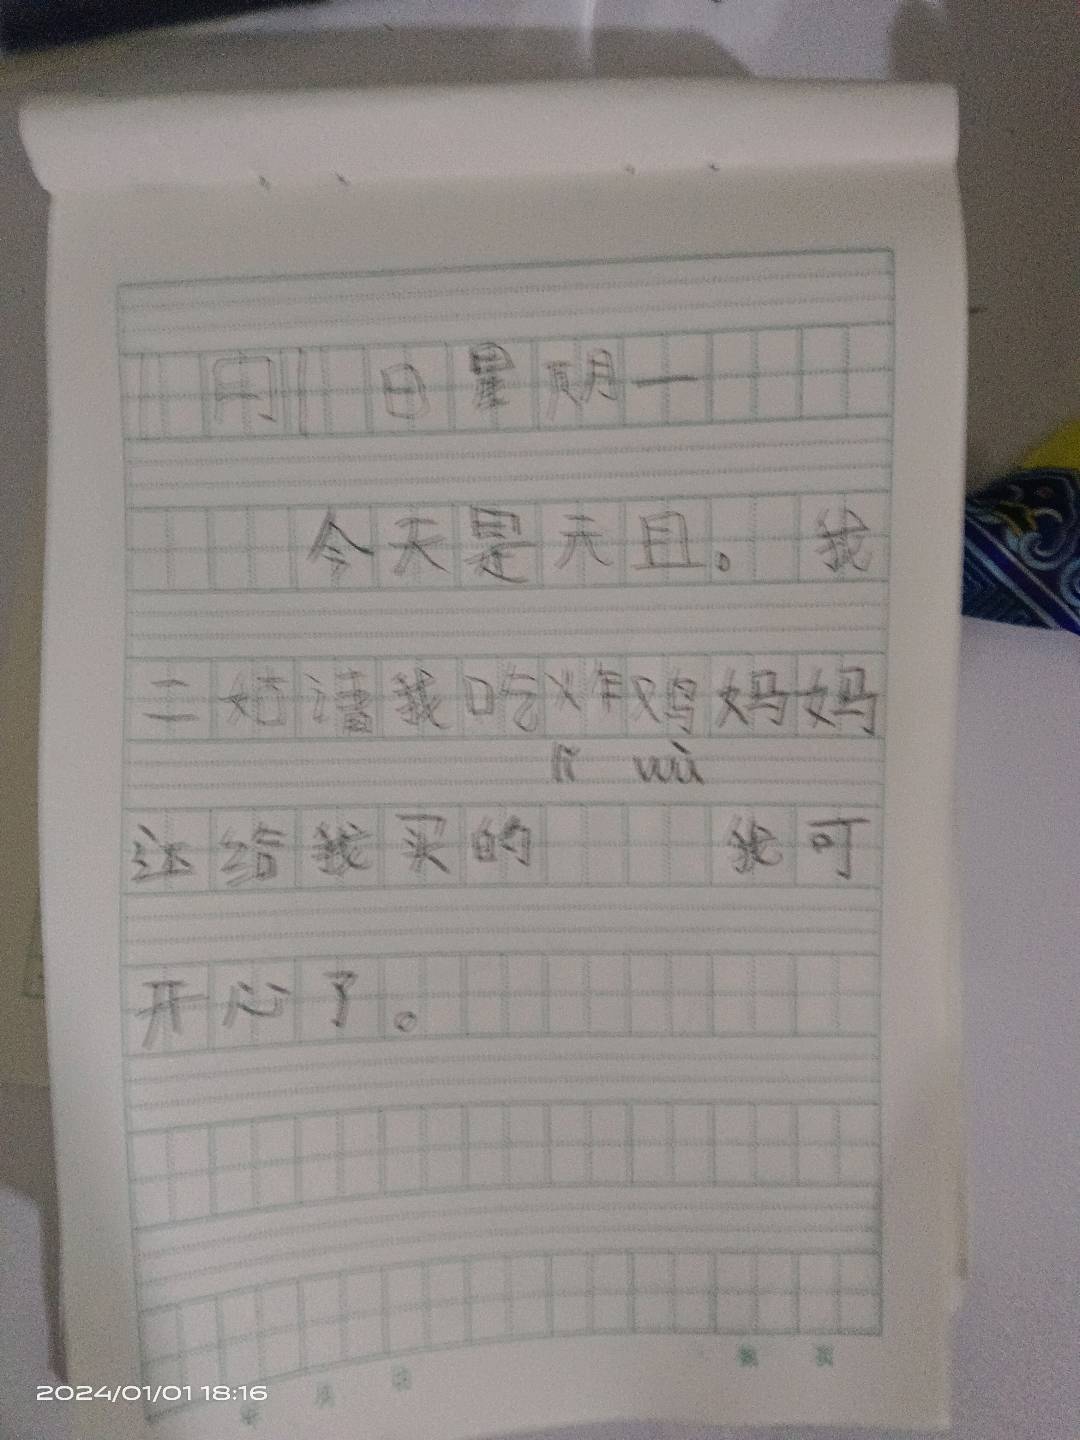 1月1日星期一
今天是元旦。我
二姑请我吃炸鸡妈妈
lǐ wù
还给我买的 我可
开心了。
年 月 日 第 页
2024/01/01 18:16